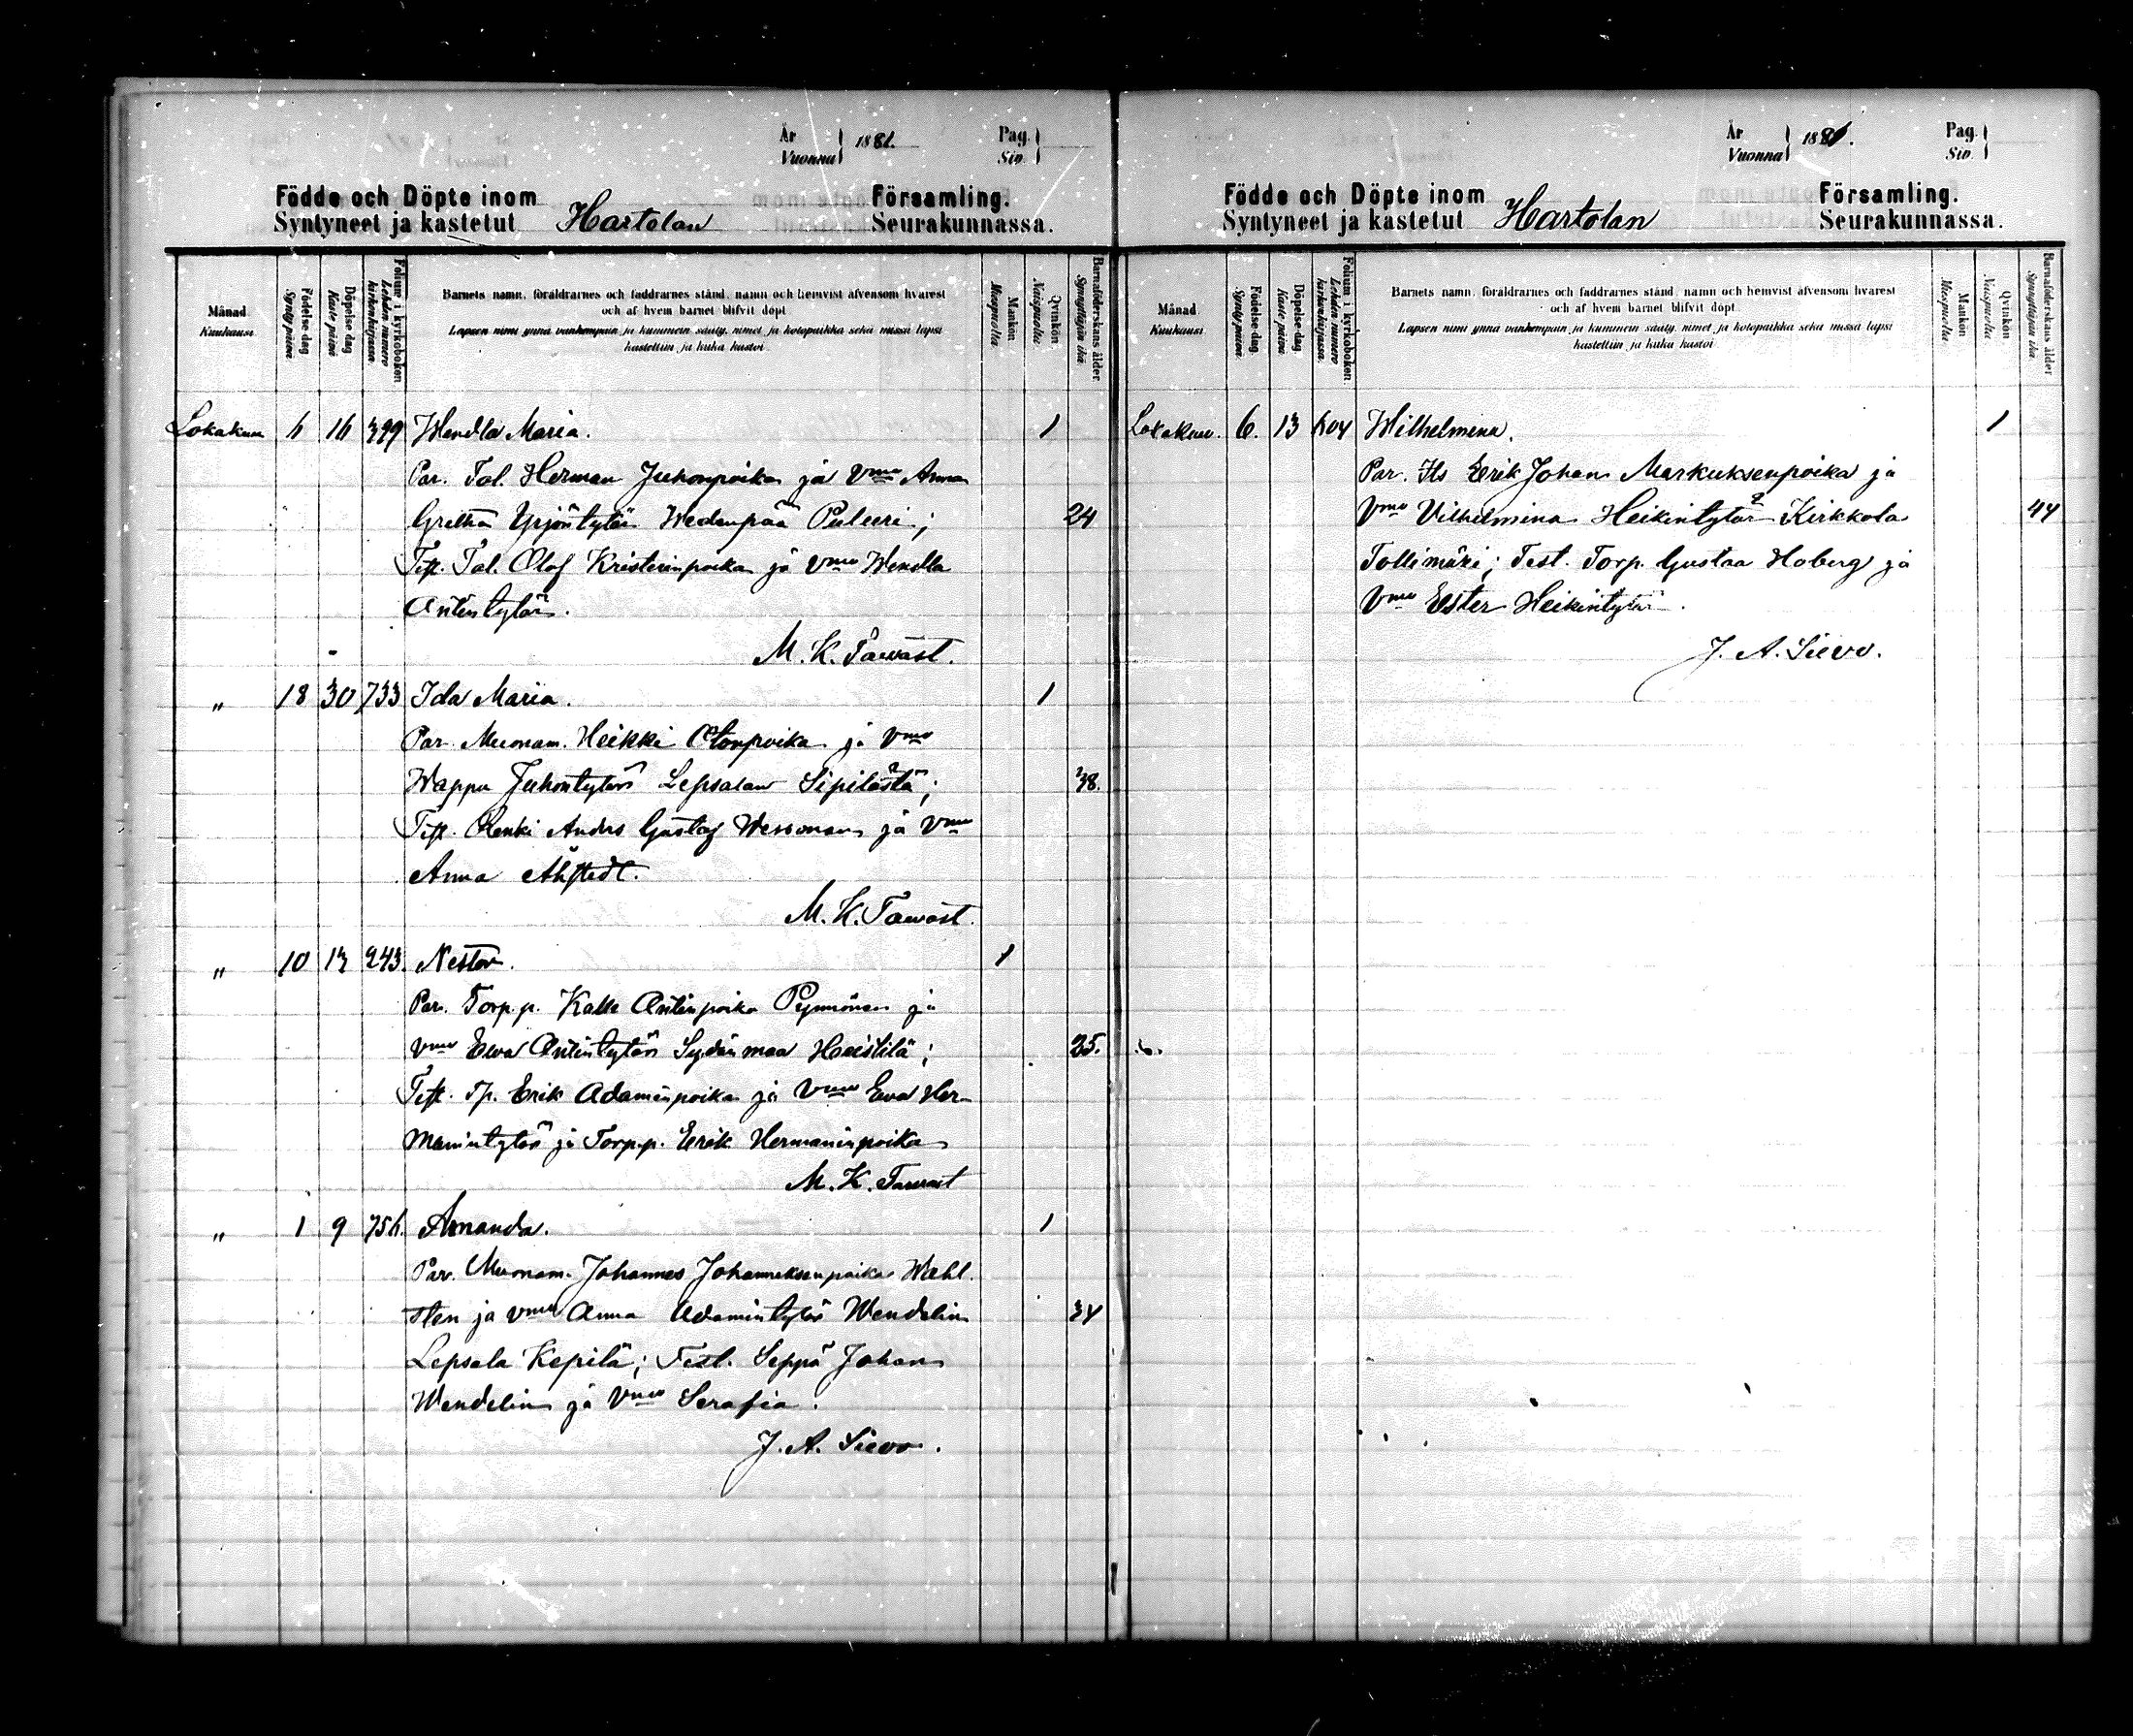 År Vuonna 1881. Pag. Siv.
Födde och Döpte inom Hartolan Församling.
Syntyneet ja kastetut Seurakunnassa.
Månad Kuukausi
Födelse dag Synty päivä
Döpelse dag Kaste päivä
Folium i kyrkoboken Lehden numero kirkonkirjassa.
Barnets namn, föräldrarnes och faddrarnes stånd, namn och hemvist äfvensom hvarest
och af hvem barnet blifvit döpt
Lapsen nimi ynnä vanhempain ja kummein sääty, nimet ja kotopaikka sekä missä lapsi
kastettiin ja kuka kastoi
Mankön Miespuolia
Qvinkön Naispuolia
Barnaföderskans ålder. Synnyttäjän ikä
Lokakuu 6 16 399 Wendla Maria. 1
Par. Tal. Herman Juhonpoika ja Vmo Anna
Gretha Yrjöntytär Wedenpää Puleeri; 24
Test. Tal. Olof Kristerinpoika ja Vmo Wendla
Antintytär.
M. K. Tawast.
" 18 30 733 Ida Maria. 1
Par. Muonam. Heikki Otonpoika ja Vmo
Wappu Juhontytär Lepsalan Sipilästä; 38.
Test. Renki Anders Gustaf Wessman ja Vmo
Anna Åhstedt.
M. K. Tawast.
" 10 13 243. Nestor. 1
Par. Torp.p. Kalle Antinpoika Pynnönen ja
Vmo Ewa Antintytär Sydänmaa Haistilä; 25.
Test. Tp. Erik Adaminpoika ja Vmo Ewa Her-
manintytär ja Torp.p. Erik Hermaninpoika
M. K. Tawast
" 1 9 756. Amanda. 1
Par. Muonam. Johannes Johanneksenpoika Wahl-
sten ja Vmo Anna Adamintytär Wendelin 34
Lepsala Kepilä; Test. Seppä Johan
Wendelin ja Vmo Serafia.
J. A. Sievo.
År Vuonna 1881. Pag. Siv.
Födde och Döpte inom Hartolan Församling.
Syntyneet ja kastetut Seurakunnassa.
Månad Kuukausi
Födelse dag Synty päivä
Döpelse dag Kaste päivä
Folium i kyrkoboken Lehden numero kirkonkirjassa.
Barnets namn, föräldrarnes och faddrarnes stånd, namn och hemvist äfvensom hvarest
och af hvem barnet blifvit döpt.
Lapsen nimi ynnä vanhempain ja kummein sääty, nimet ja kotopaikka sekä missä lapsi
kastettiin ja kuka kastoi
Mankön Miespuolia
Qvinkön Naispuolia
Barnaföderskans ålder Synnyttäjän ikä
Lokakuu. 6. 13 604 Wilhelmina. 1
Par. Its Erik Johan Markuksenpoika ja
Vmo Vilhelmina Heikintytär Kirkkola 44
Tollimäki; Test. Torp. Gustaa Hoberg ja
Vmo Ester Heikintytär.
J. A. Sievo.